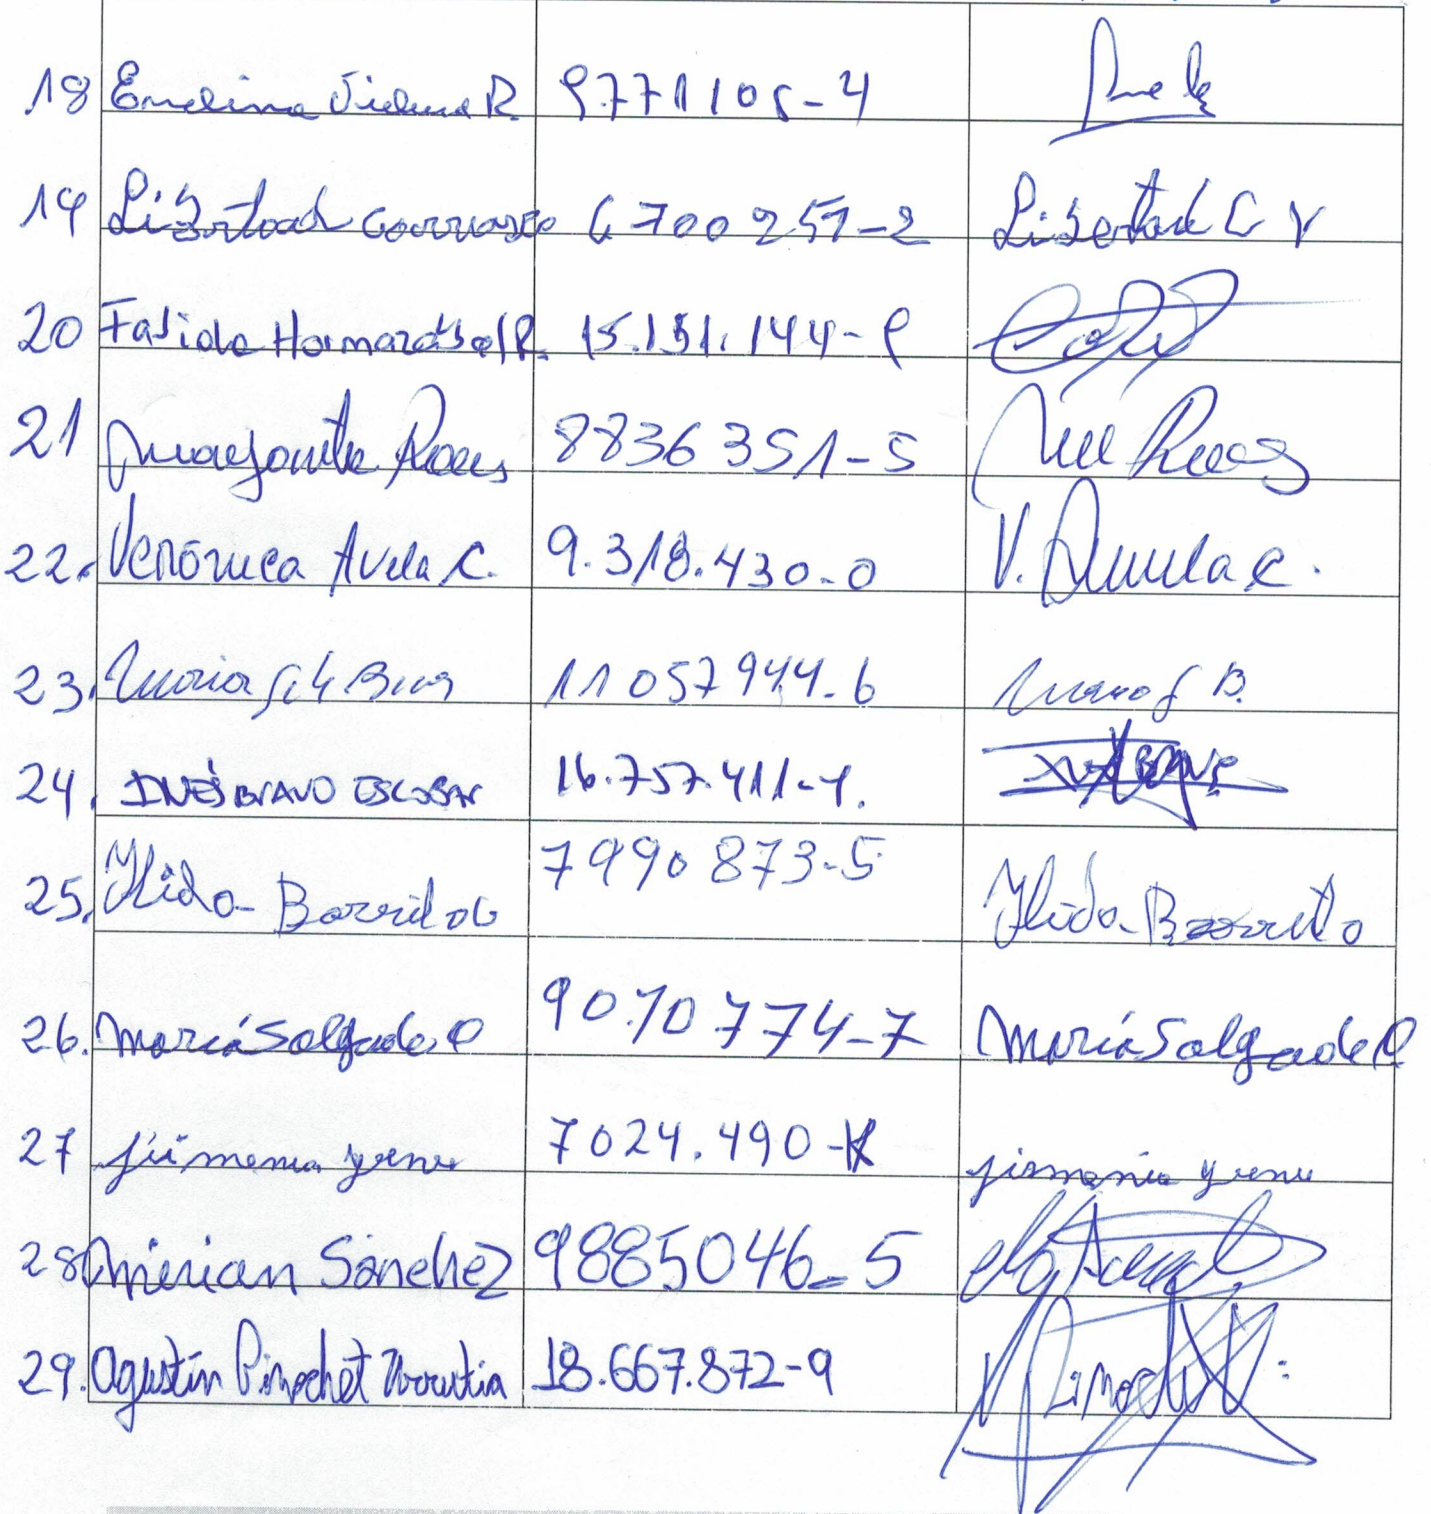 18 Emelina Vielma R. 9771105-4
19 Libertad Carrasco 6700251-2 Libertad C V
20 Fabiola Hormazabal R. 15.151.144-9
21 Margarita Rojas 8836351-5
22. Verónica Avila C. 9.318.430-0 V. Avila C.
23. Maria 11057944-6 Maria B.
24. INÉS BRAVO ESCOBAR 16.757.411-1.
25. Ilida Barrito 7990873-5 Ilida Barrito
26. María Salgado 9070774-7 María Salgado
27 7024.490-K
28 Mirian Sánchez 9885046-5
29. Agustín Pinochet Urrutia 18.667.872-9 Pinochet